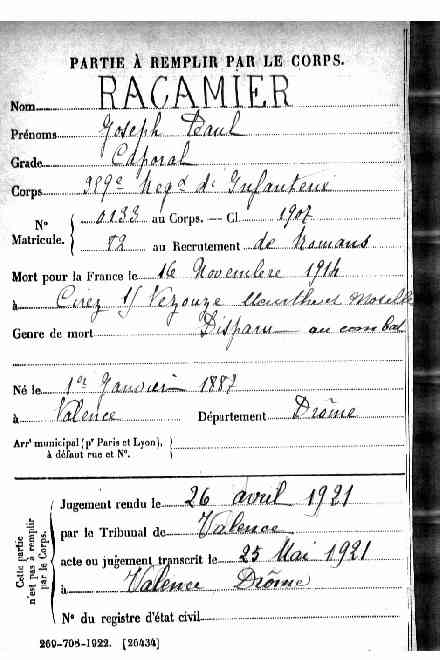 PARTIE À REMPLIR PAR LE CORPS.
Nom RACAMIER
Prénoms Joseph Paul
Grade Caporal
Corps Regt d'Infanterie
N° Matricule. { 0133 au Corps. — Cl 1907
82 au Recrutement de Romans
Mort pour la France le 16 Novembre 1914
à Cirez s/ Vezouze Meurthe et Moselle
Genre de mort Disparu au combat
Né le 1er Janvier 1887
à Valence Département Drôme
Arrt municipal (pr Paris et Lyon), à défaut rue et N°.
Cette partie n'est pas à remplir par le Corps.
Jugement rendu le 26 avril 1921
par le Tribunal de Valence
acte ou jugement transcrit le 25 Mai 1921
à Valence Drôme
N° du registre d'état civil
269-708-1922. [26434]